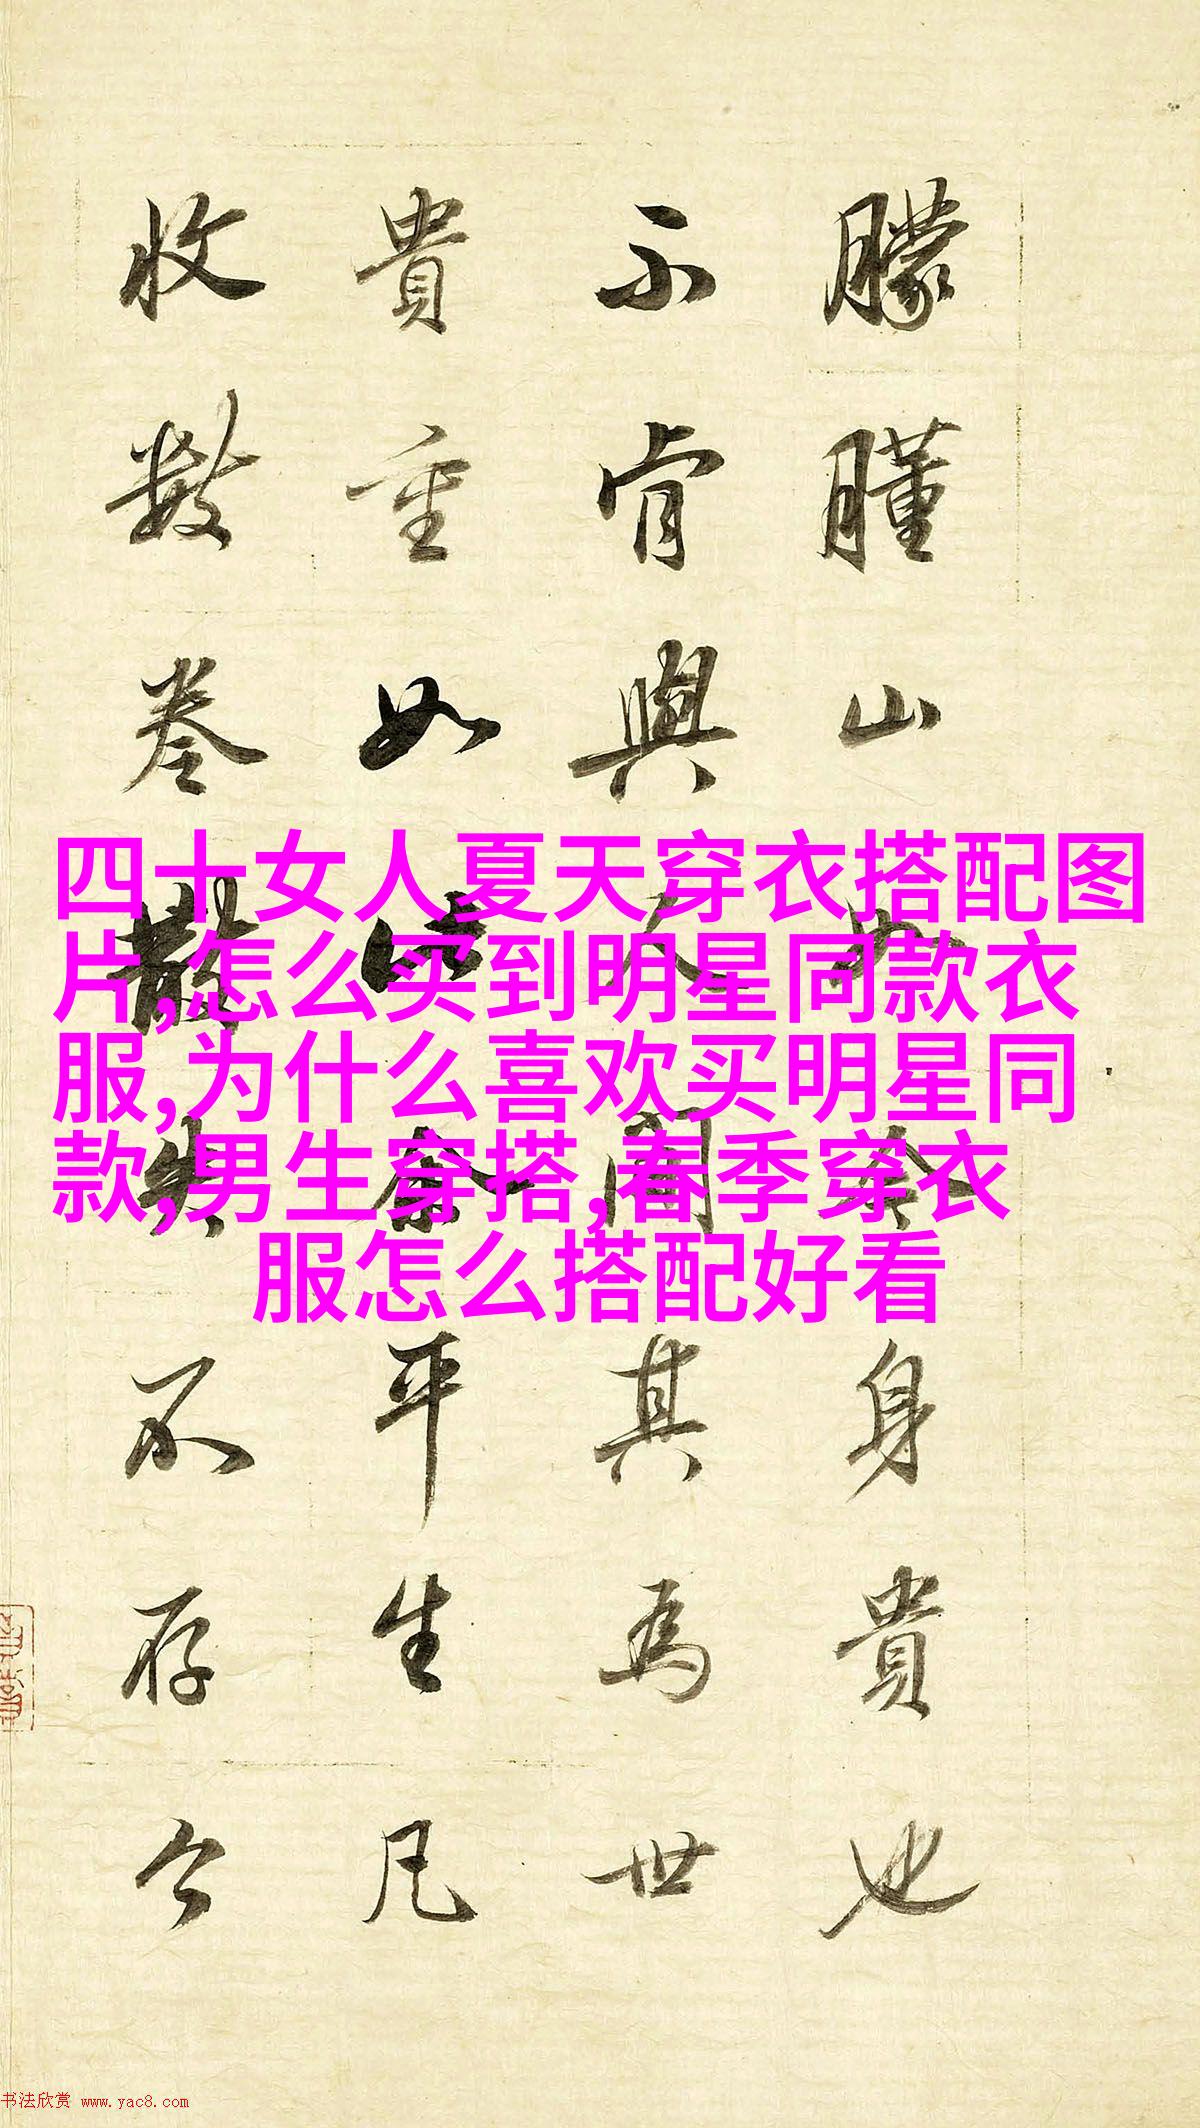 朦朣山身貴也
不肯與人其為世
貴重如此余平生凡
收數卷散失不存今
四十女人夏天穿衣搭配图
片,怎么买到明星同款衣
服,为什么喜欢买明星同
款,男生穿搭,春季穿衣
服怎么搭配好看
书法欣赏 www.yac8.com